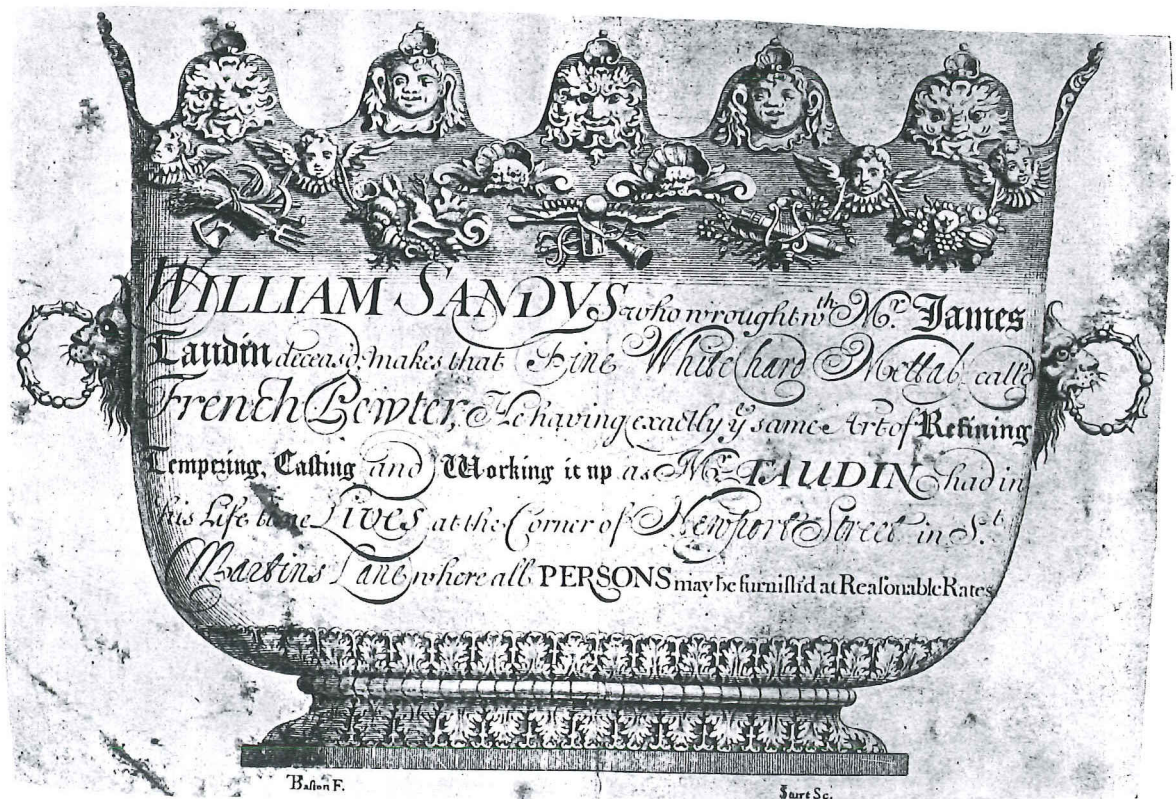 WILLIAM SANDVS who wrought wth. Mr. James
Taudin deceas'd, makes that Fine White hard Mettal, call'd
French Pewter, He having exactly ye same Art of Refining
Tempring, Casting and Working it up as Mr. TAUDIN had in
his Life time LIVES at the Corner of Newport Street in St.
Martins Lane where all PERSONS may be furnish'd at Reasonable Rates
Baston F.
Sc.